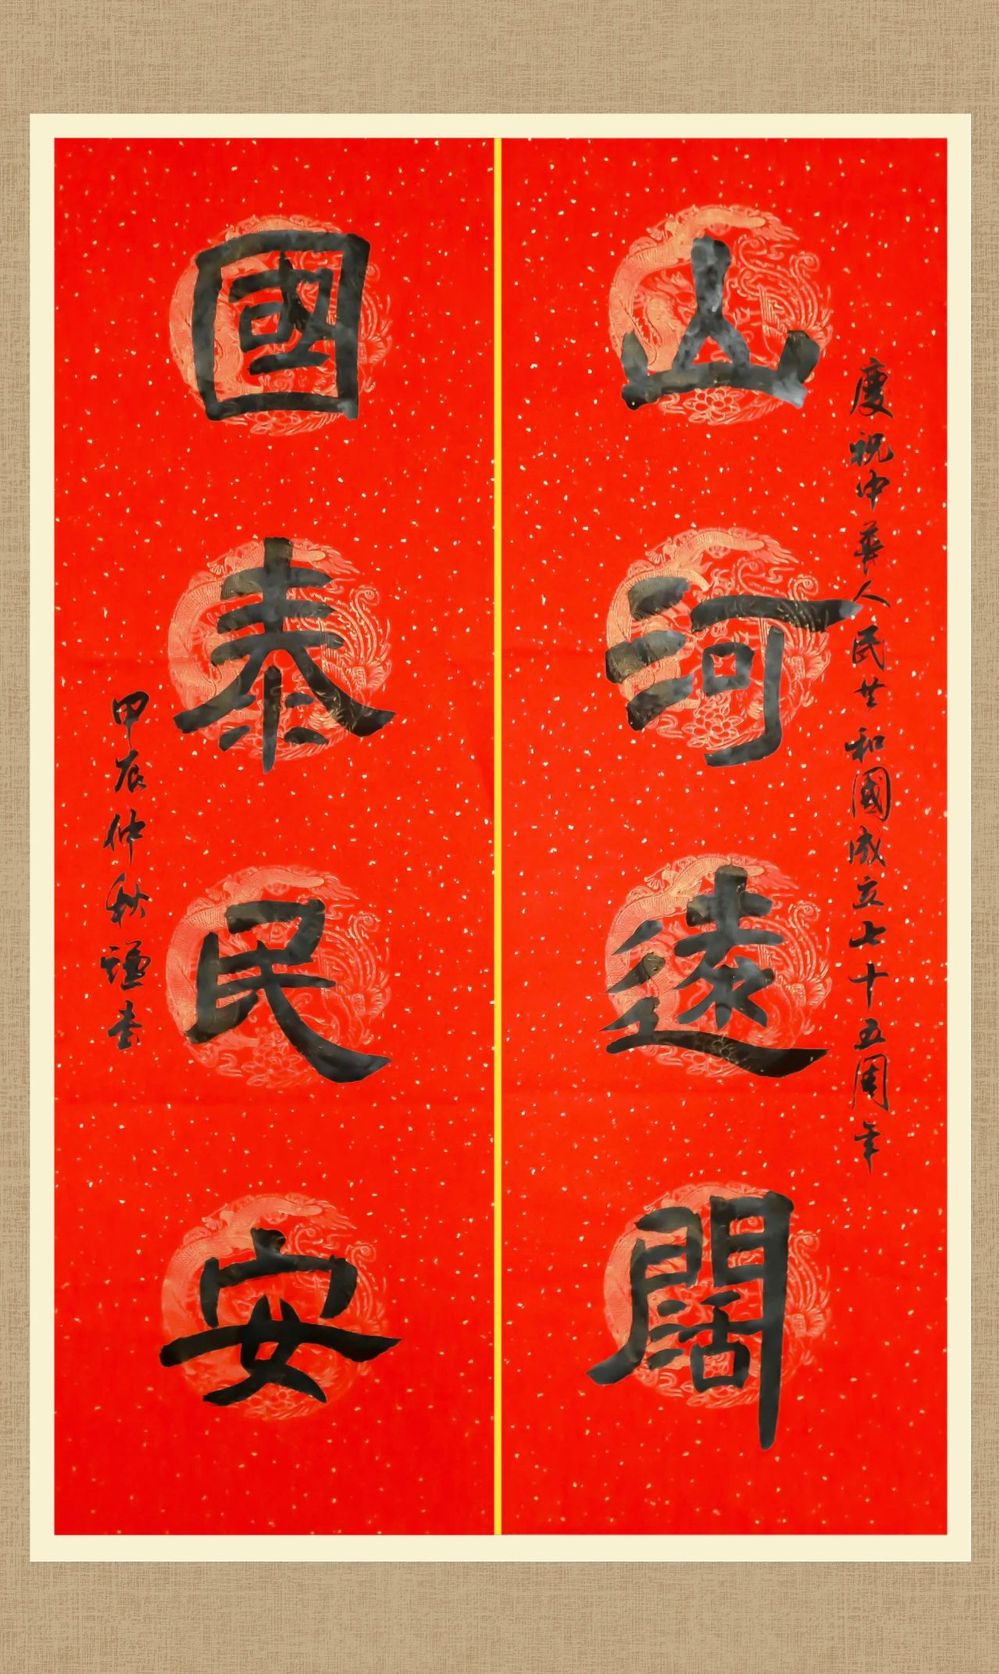 慶祝中華人民共和國成立七十五周年
山河遠闊
國泰民安
甲辰仲秋謹書